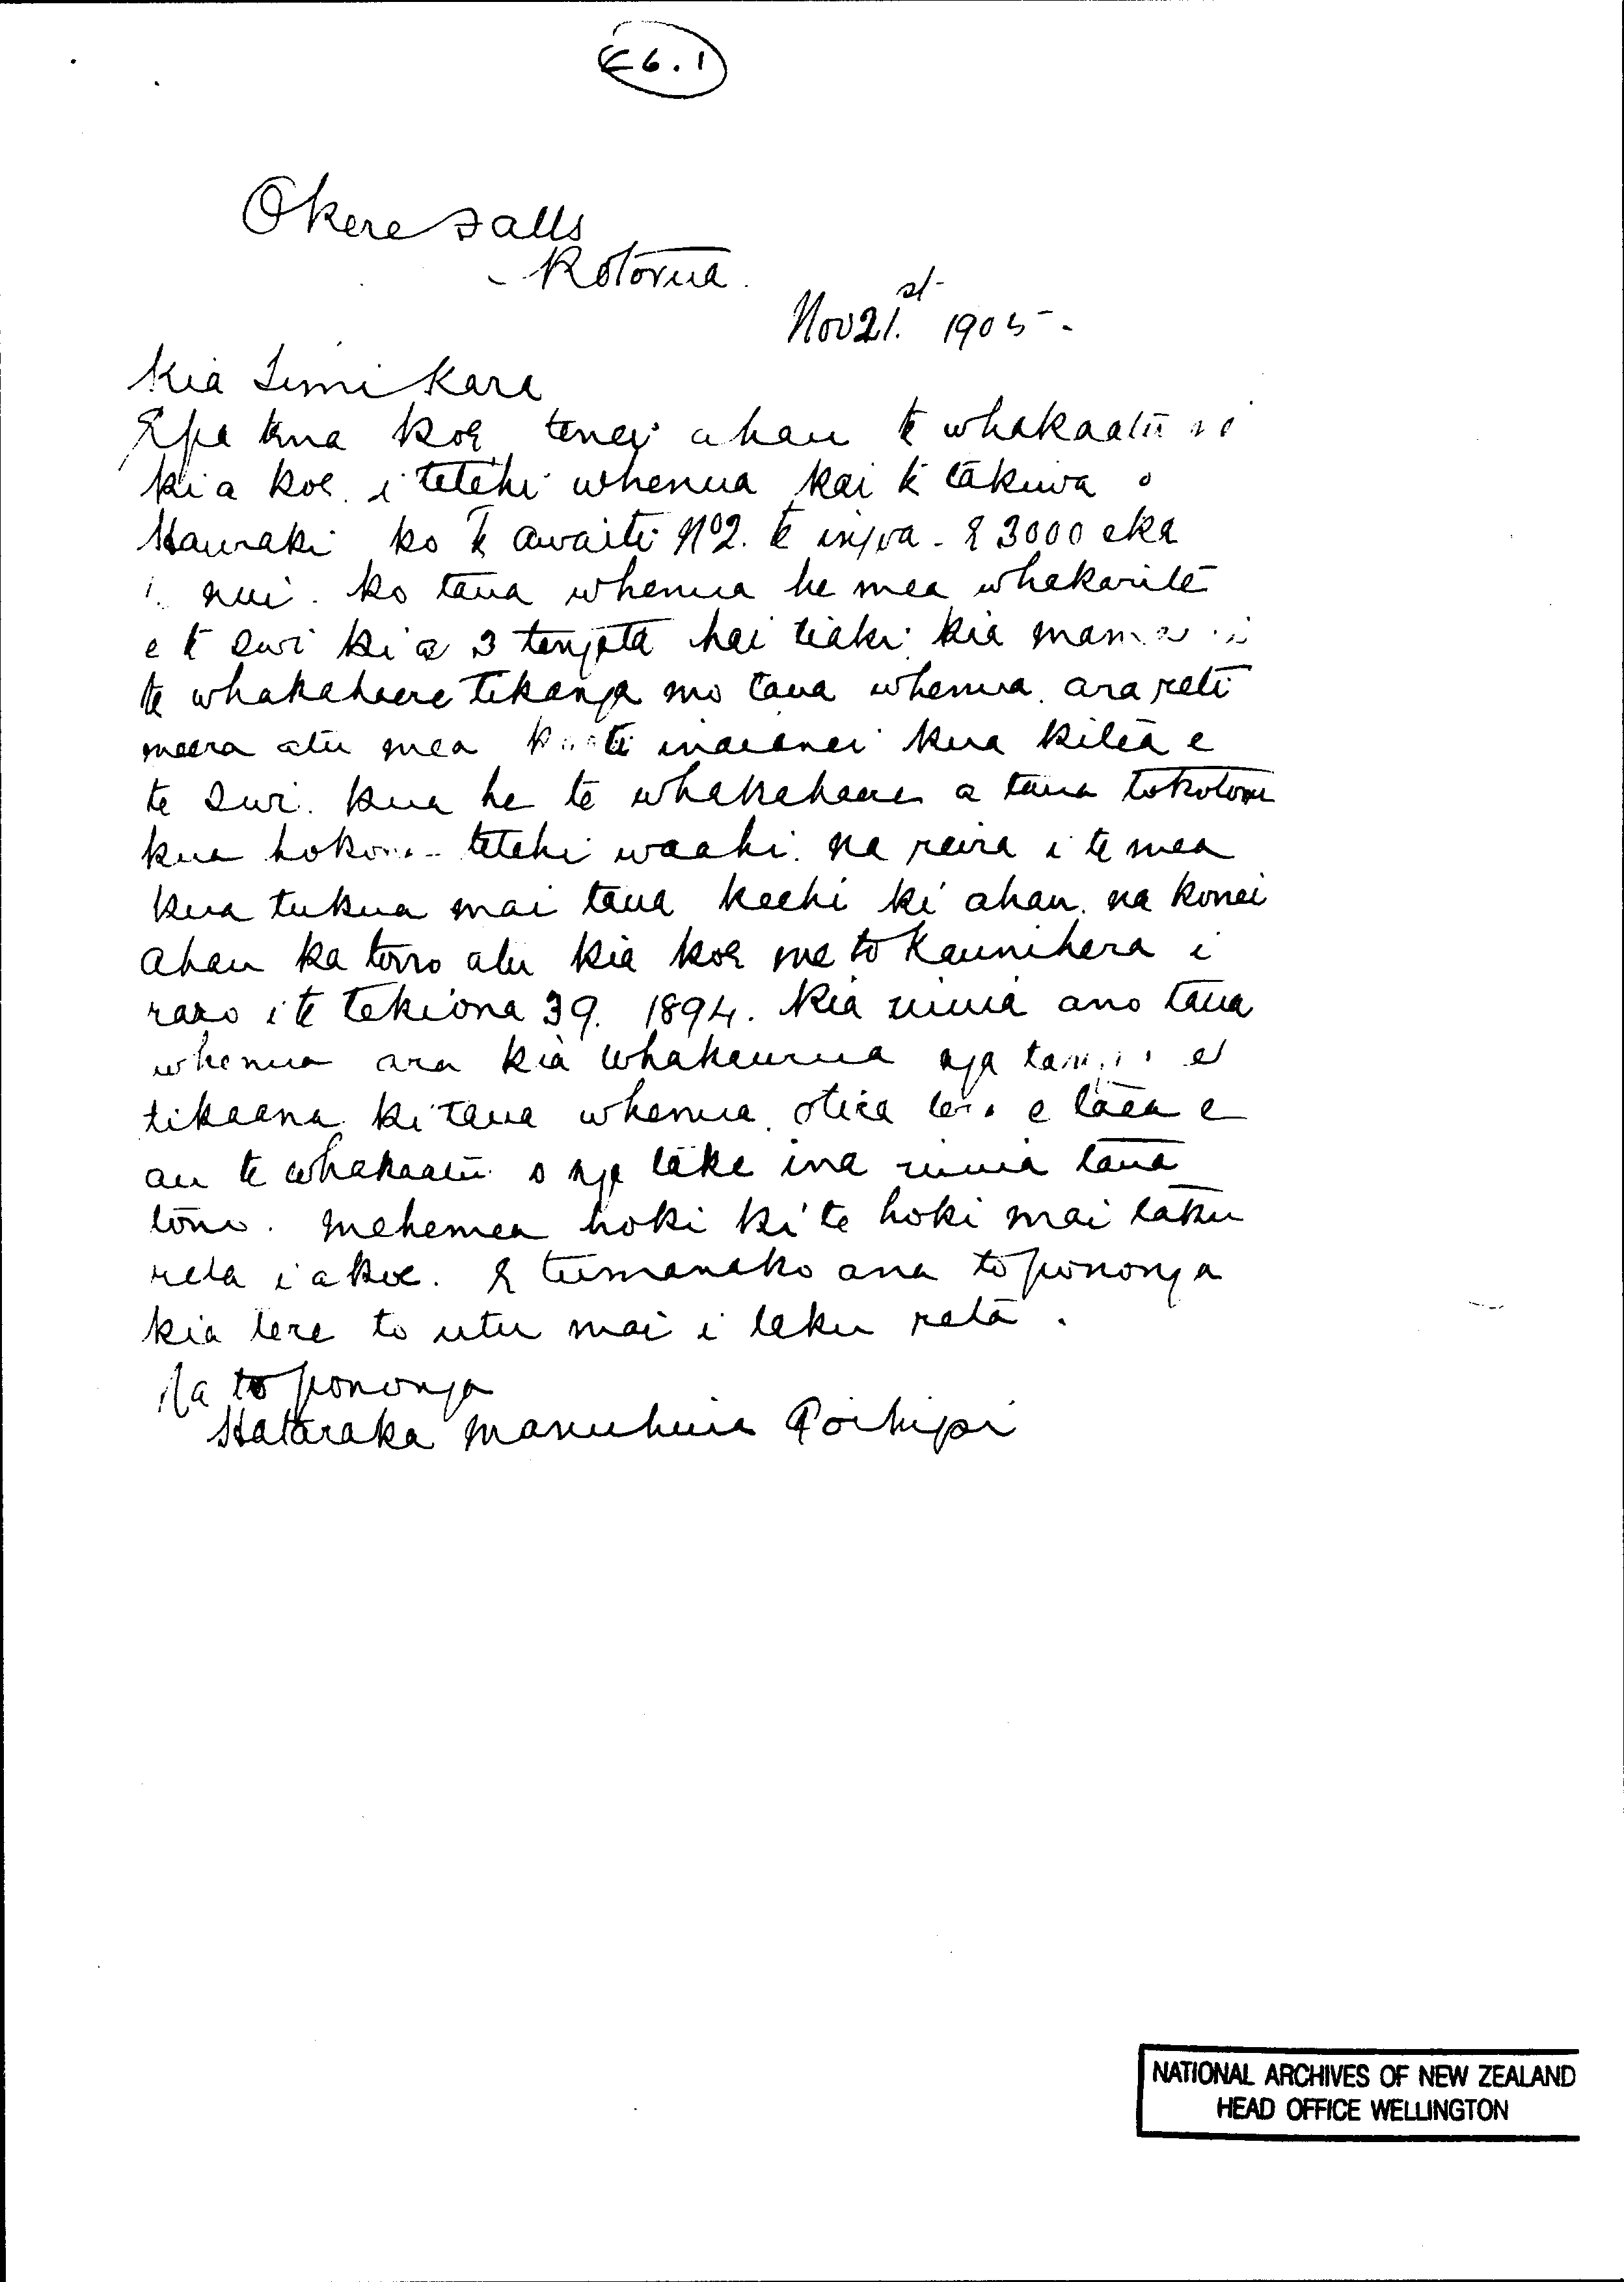 E6.1
Okere Falls
Rotorua.
Nov 21.st 1905.
Kia Timi Kara
E pa tena koe tenei ahau te whakaatu
kia koe. i tetehi whenua kai te takiwa o
Hauraki ko Te Awaiti No2. te ingoa. E 3000 eka
nui. ko taua whenua he mea whakarite
e te Iwi ki a 3 tangata hai tiaki. kia
te whakahaere tikanga mo taua whenua. ara reti
meera atu mea inaianei kua kitea e
te Iwi. kua he te whakahaere a taua tokotoru
kua tetehi waahi. na reira i te mea
kua tukua mai taua keehi ki ahau. na konei
ahau ka tono atu kia koe me to Kaunihera i
raro i te Tekiona 39. 1894. kia uiuia ano taua
whenua ara kia whakaurua nga
tikaana ki taua whenua. otira e taea e
au te whakaatu o nga take ina uiuia taua
tono. mehemea hoki ki te hoki mai taku
reta i a koe. E tumanako ana to pononga
kia tere to utu mai i taku reta.
Na to pononga
Hataraka Manuhuia Poihipi
NATIONAL ARCHIVES OF NEW ZEALAND
HEAD OFFICE WELLINGTON